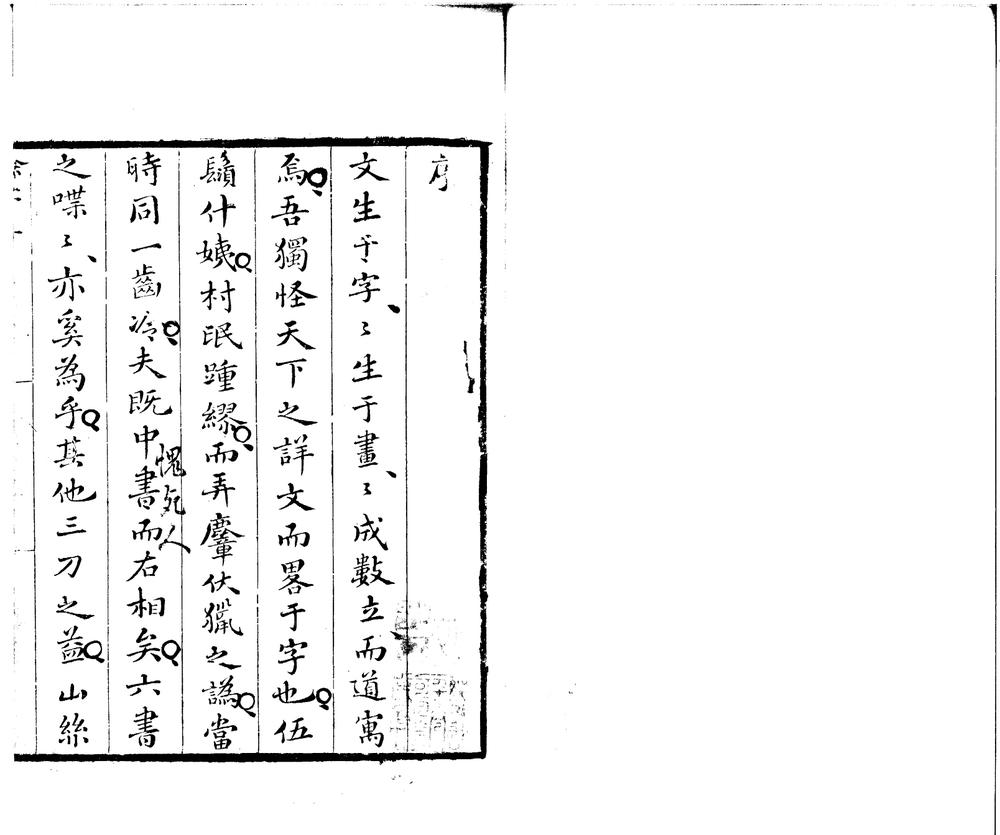 序
文生于字、〻生于畫、〻成數立而道寓
焉吾獨怪天下之詳文而畧于字也伍
鬚什姨村氓踵繆而弄麞伏獵之譌當
時同一齒冷夫既中書而右相矣六書
愧死人
之喋〻、亦奚為乎其他三刀之益山絲